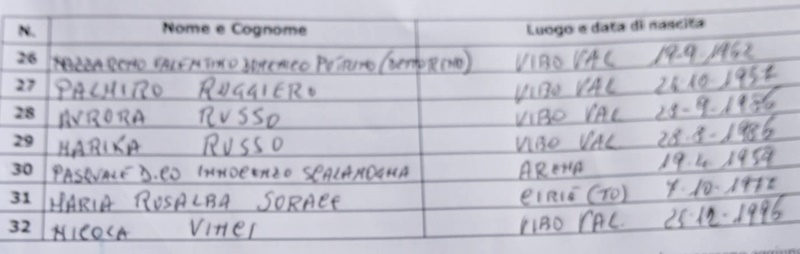 N. Nome e Cognome Luogo e data di nascita
26 NAZZARENO VALENTINO DOMENICO VIBO VAL 19.9.1962
27 PALMIRO RUGGIERO VIBO VAL
28 AURORA RUSSO VIBO VAL
29 MARIKA RUSSO VIBO VAL 28.8.1986
30 PASQUALE D.CO INNOCENZO SCALAMOGNA ARENA 19.4.1959
31 MARIA ROSALBA SORACE CIRIÈ (TO)
32 NICOLA VINCI VIBO VAL. 25.12.1996